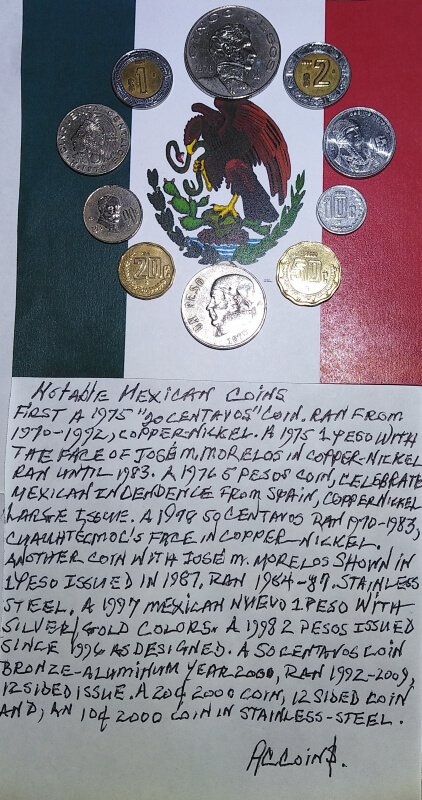 CINCO PESOS
1
2
CINCUENTA CENTAVOS
10¢
20¢
50¢
UN PESO
1975
NOTABLE MEXICAN COINS
FIRST A 1975 "20 CENTAVOS" COIN. RAN FROM
1970-1992, COPPER-NICKEL. A 1975 1 PESO WITH
THE FACE OF JOSÉ M. MORELOS IN COPPER-NICKEL
RAN UNTIL 1983. A 1976 5 PESOS COIN, CELEBRATE
MEXICAN INDENDENCE FROM SPAIN, COPPER NICKEL
LARGE ISSUE. A 1978 50 CENTAVOS RAN 1970-1983,
CUAUHTEMOC'S FACE IN COPPER-NICKEL.
ANOTHER COIN WITH JOSÉ M. MORELOS SHOWN IN
1 PESO ISSUED IN 1987. RAN 1984-87. STAINLESS
STEEL. A 1997 MEXICAN NUEVO 1 PESO WITH
SILVER/GOLD COLORS. A 1998 2 PESOS ISSUED
SINCE 1996 AS DESIGNED. A 50 CENTAVOS COIN
BRONZE-ALUMINUM YEAR 2000, RAN 1992-2009,
12 SIDED ISSUE. A 20¢ 2000 COIN, 12 SIDED COIN
AND, AN 10¢ 2000 COIN IN STAINLESS-STEEL.
ACCOIN$.